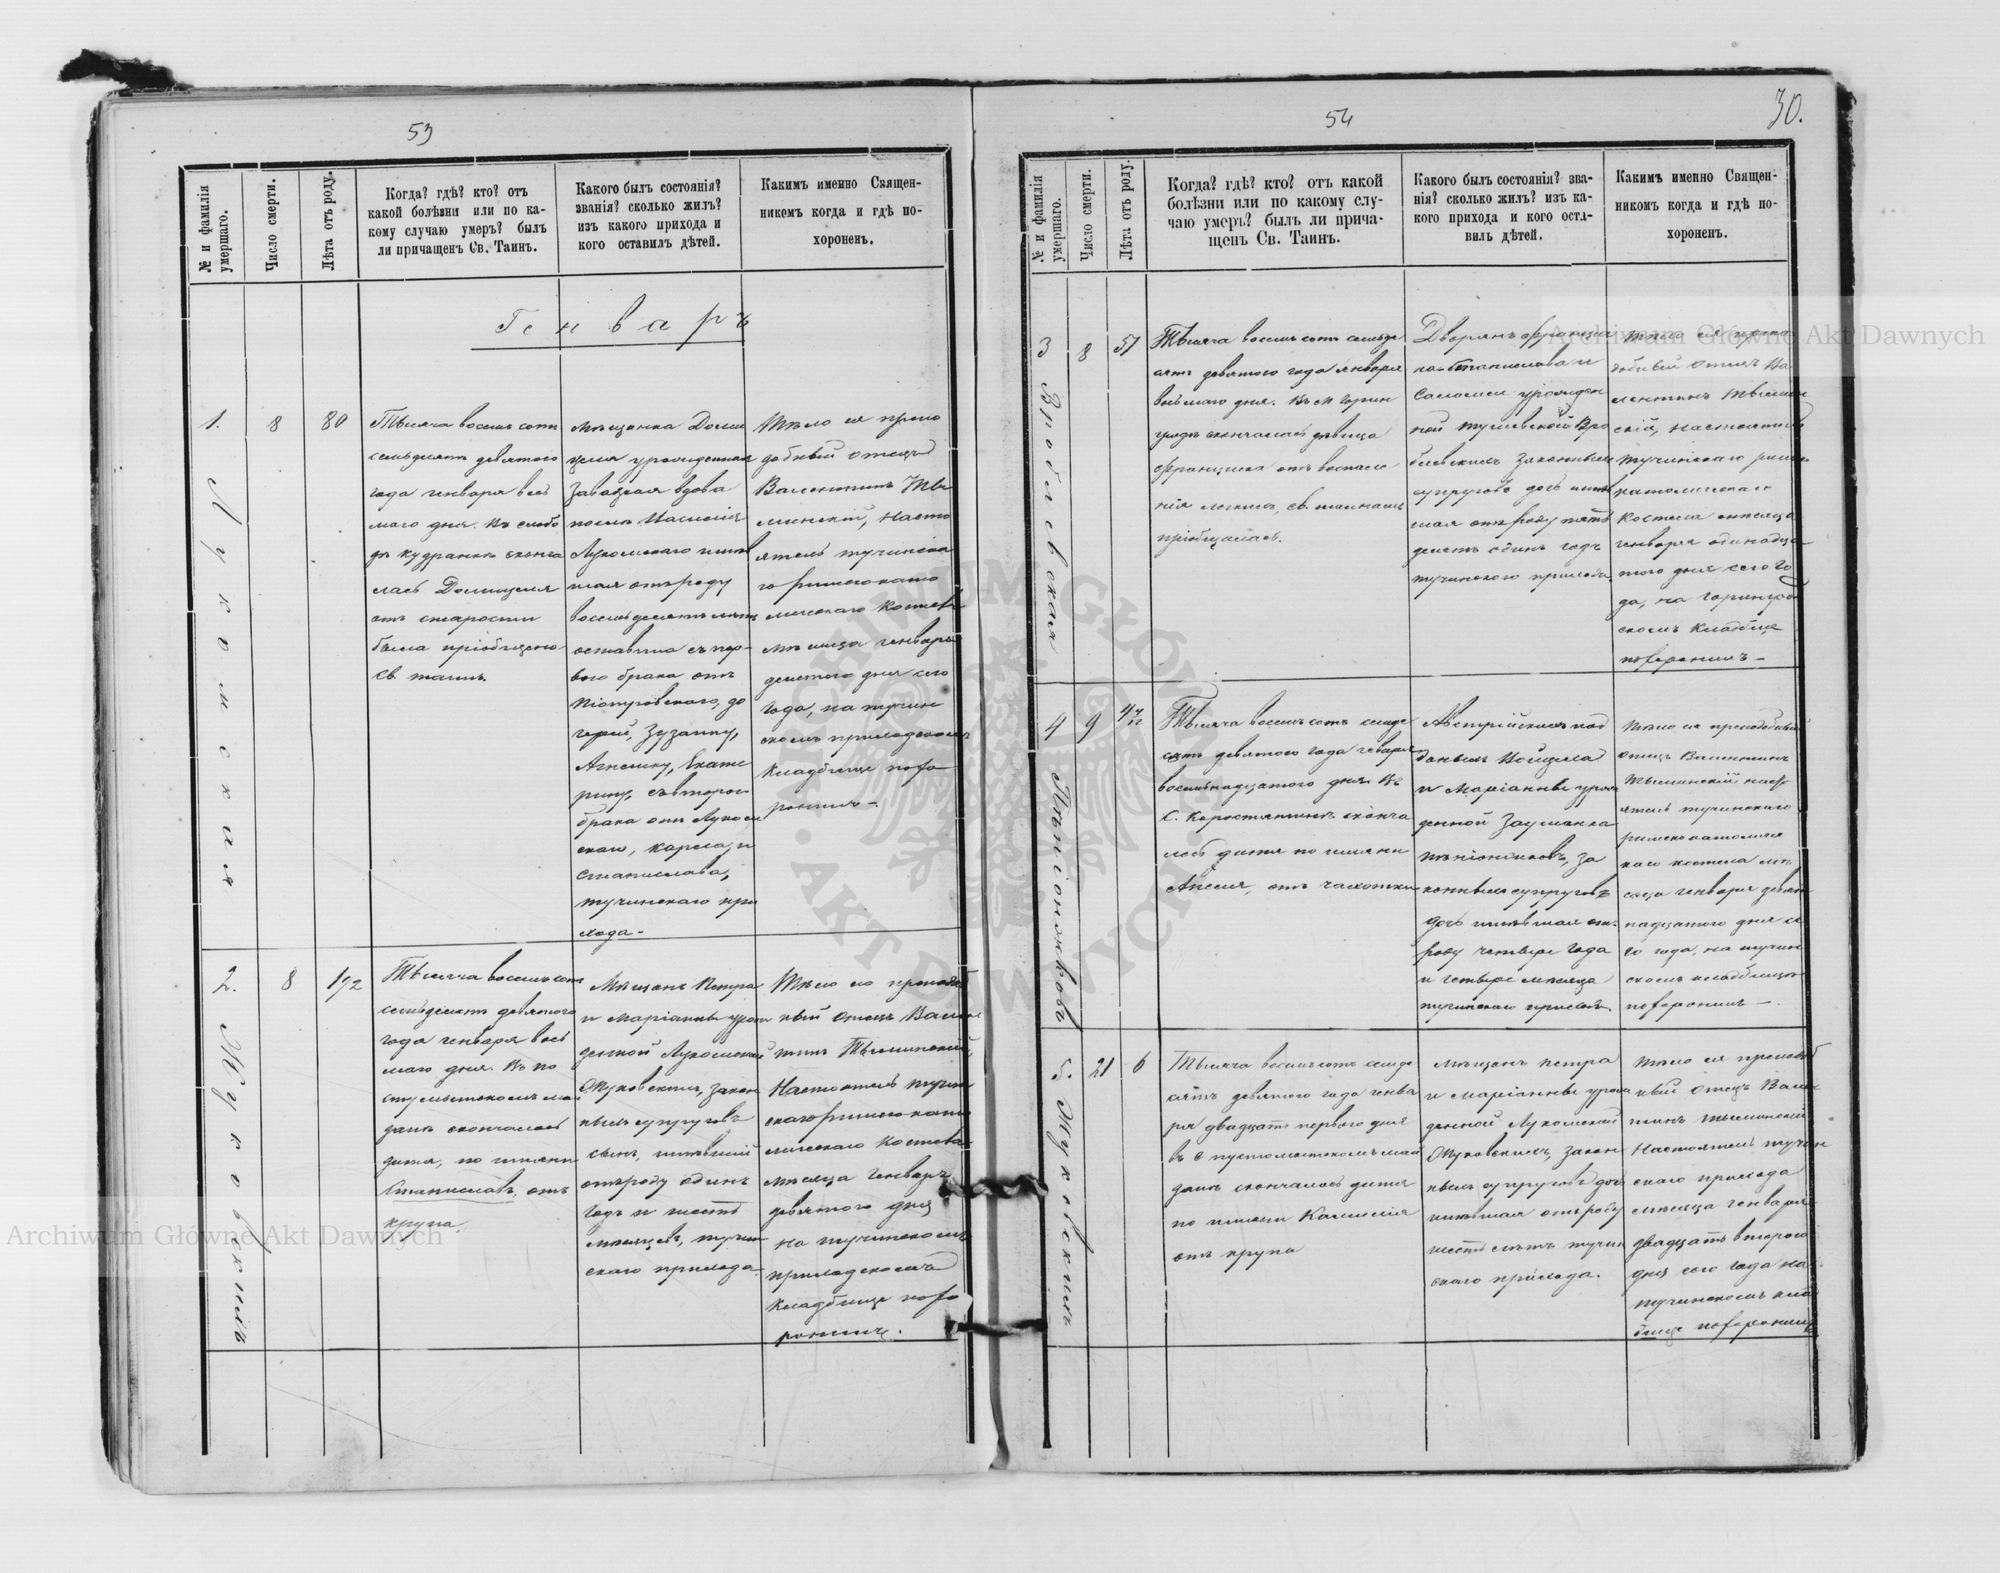 53
№ и фамилія умершаго.
Число смерти.
Лѣта отъ роду.
Когда? гдѣ? кто? отъ
какой болѣзни или по ка-
кому случаю умеръ? былъ
ли причащенъ Св. Таинъ.
Какого былъ состоянія?
званія? сколько жилъ?
изъ какого прихода и
кого оставилъ дѣтей.
Какимъ именно Священ-
никомъ когда и гдѣ по-
хороненъ.
Генваръ
1.
Лукомская
8
80
Тысяча восемь сотъ
семьдесятъ девятого
года генваря вось
маго дня. Въ слобо
дѣ Кудранкѣ сконча
лась Домицеля
отъ старости
была пріобщено
Св. таинъ
Мѣщанка Доми
целя урожденная
Завадзкая вдова
послѣ
Лукомскаго имѣв
шая отъ роду
восемьдесятъ лѣтъ
оставила съ пер-
вого брака отъ
Піотровскаго, до
черей, Зузанну,
Агнешку, Екате
рину, съ второго
брака отъ Луком
скаго, Карла, и
Станислава,
тучинскаго при
хода-
Тѣло ея препо
добный отецъ
Валентинъ Тыс
минскій, Насто
ятель тучинска
го римско като
лическаго Костела
мѣсяца генваря
девятого дня сего
года, на тучин
скомъ приходскомъ
кладбище похо
ронилъ-
2.
Жуковскихъ
8
1 6/12
Тысяча восемь сотъ
семьдесятъ девятого
года генваря вось
маго дня. Въ по
стомытскомъ май
данѣ скончалось
дитя, по имяни
Станиславъ, отъ
крупа.
Мѣщанъ Петра
и Маріанны урож
денной Лукомской
Жуковскихъ, закон
ныхъ супруговъ
сынъ, имѣвшій
отъ роду одинъ
годъ и шесть
мѣсяцевъ, тучин
скаго прихода.
Тѣло его преподоб
ный Отецъ Вален
тинъ Тысминскій,
Настоятель тучин
скаго римско като
лическаго Костела
мѣсяца Генваръ
девятого дня
на тучинскомъ
приходскомъ
кладбище похо
ронилъ.
54
30.
№ и фамилія умершаго.
Число смерти.
Лѣта отъ роду.
Когда? гдѣ? кто? отъ какой
болѣзни или по какому слу-
чаю умеръ? былъ ли прича-
щенъ Св. Таинъ.
Какого былъ состоянія? зва-
нія? сколько жилъ? изъ ка-
кого прихода и кого оста-
вилъ дѣтей.
Какимъ именно Священ-
никомъ когда и гдѣ по-
хороненъ.
3
Врублевская
8
51
Тысяча восемь сотъ семьде
сятъ девятого года января
восьмаго дня. Въ м Горин
градѣ скончалась дѣвица
Францишка отъ воспале
нія легкихъ, св. таинамъ
пріобщалась.
Дворянъ
Станислава и
Саломеи урожден
ной Вро
блевскихъ законныхъ
супруговъ дочь имѣв
шая отъ роду пять
десятъ одинъ годъ
тучинского прихода
Тѣло ея препо
добный отецъ Ва
лентинъ Тысмин
скій, настоятель
тучинскаго римско
католическаго
Костела мѣсяца
генваря одинадца
того дня сего го
да, на Горинград
скомъ кладбище
похоронилъ-
4
9
4 4/12
Тысяча восемь сотъ семьде
сятъ девятого года генваря
восемьнадцатого дня Въ
С. Коростятинѣ сконча
лось дитя по имяни
Анеля, отъ чахотки
Австрійскихъ под
данныхъ Войцеха
и Маріанны урож
денной
законныхъ супруговъ
дочь имѣвшая отъ
роду четыре года
и четыре мѣсяца
тучинскаго прихода.
Тѣло ея преподобный
отецъ Валентинъ
Тысминскій насто
ятель тучинскаго
римско католиче
скаго костела мѣ
сяца генваря девят
надцатого дня се
го года, на тучин
скомъ кладбище
похоронилъ-.
5.
Жуковскихъ
21
6
Тысяча восемь сотъ семьде
сятъ девятого года генва
ря двадцать первого дня
въ с пустомытскомъ май
данѣ скончалось дитя
по имяни Камилія
отъ крупа
Мѣщанъ Петра
и Маріанны урож
денной Лукомской
Жуковскихъ, закон
ныхъ супруговъ дочь
имѣвшая отъ роду
шесть лѣтъ тучин
скаго прихода.
Тѣло ея преподоб
ный Отецъ Вален
тинъ Тысминскій
Настоятель тучин
скаго прихода
мѣсяца генваря
двадцать второго
дня сего года на
тучинскомъ клад
бище похоронилъ
Archiwum Główne Akt Dawnych
Archiwum Główne Akt Dawnych
ARCHIWUM GŁÓWNE AKT DAWNYCH